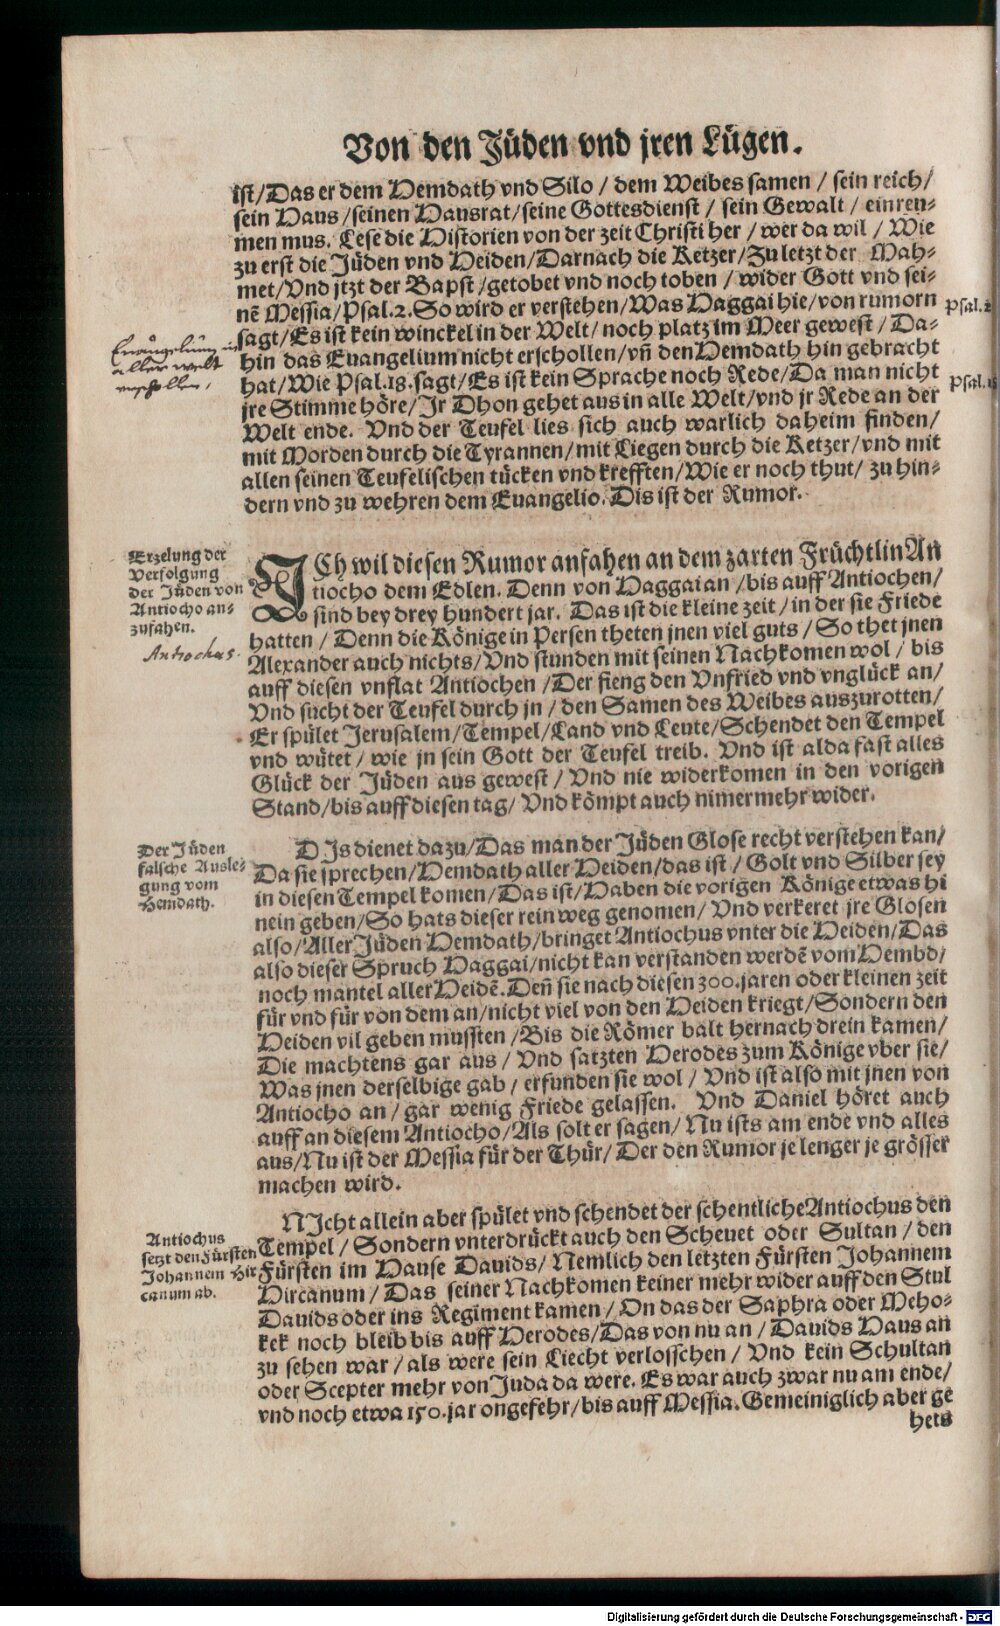 Von den Jüden vnd jren Lügen.
ist/Das er dem Hemdath vnd Silo / dem Weibes samen / sein reich/
sein Haus /seinen Hausrat/seine Gottesdienst / sein Gewalt / einreu-
men mus. Lese die Historien von der zeit Christi her / wer da wil / Wie
zu erst die Jüden vnd Heiden/Darnach die Ketzer/Zu letzt der Mah-
met/Vnd jtzt der Bapst/getobet vnd noch toben / wider Gott vnd sei-
nē Messia/Psal.2. So wird er verstehen/Was Haggai hie/von rumorn
Psal.2
sagt/Es ist kein winckel in der Welt/ noch platz im Meer gewest / Da-
Euangelium in
aller welt
erschollen,
hin das Euangelium nicht erschollen/vñ den Hemdath hin gebracht
hat/Wie Psal.18. sagt/Es ist kein Sprache noch Rede/Da man nicht
Psal.18
jre Stimme höre/Jr Dhon gehet aus in alle Welt/vnd jr Rede an der
Welt ende. Vnd der Teufel lies sich auch warlich daheim finden/
mit Morden durch die Tyrannen/mit Liegen durch die Ketzer/vnd mit
allen seinen Teufelischen tücken vnd krefften/Wie er noch thut/ zu hin-
dern vnd zu wehren dem Euangelio. Dis ist der Rumor.
Erzelung der
Verfolgung
der Jüden von
Antiocho an-
zufahen.
Antiochus.
JCh wil diesen Rumor anfahen an dem zarten Früchtlin An
tiocho dem Edlen. Denn von Haggai an /bis auff Antiochen/
sind bey drey hundert jar. Das ist die kleine zeit / in der sie Friede
hatten / Denn die Könige in Persen theten jnen viel guts / So thet jnen
Alexander auch nichts/Vnd stunden mit seinen Nachkomen wol / bis
auff diesen vnflat Antiochen /Der fieng den Vnfried vnd vnglück an/
Vnd sucht der Teufel durch jn / den Samen des Weibes auszurotten/
Er spület Jerusalem/Tempel/Land vnd Leute/Schendet den Tempel
vnd wütet / wie jn sein Gott der Teufel treib. Vnd ist alda fast alles
Glück der Jüden aus gewest / Vnd nie widerkomen in den vorigen
Stand/bis auff diesen tag/ Vnd kömpt auch nimermehr wider.
Der Jüden
falsche Ausle-
gung vom
Hemdath.
DJs dienet dazu/Das man der Jüden Glose recht verstehen kan/
Da sie sprechen/Hemdath aller Heiden/das ist / Golt vnd Silber sey
in diesen Tempel komen/Das ist/Haben die vorigen Könige etwas hi
nein geben/So hats dieser rein weg genomen/ Vnd verkeret jre Glosen
also/Aller Jüden Hemdath/bringet Antiochus vnter die Heiden/Das
also dieser Spruch Haggai/nicht kan verstanden werdē vom Hembd/
noch mantel aller Heidē. Deñ sie nach diesen 300.jaren oder kleinen zeit
für vnd für von dem an/nicht viel von den Heiden kriegt/Sondern den
Heiden vil geben mussten /Bis die Römer balt hernach drein kamen/
Die machtens gar aus / Vnd satzten Herodes zum Könige vber sie/
Was jnen derselbige gab / erfunden sie wol / Vnd ist also mit jnen von
Antiocho an / gar wenig Friede gelassen. Vnd Daniel höret auch
auff an diesem Antiocho/Als solt er sagen/ Nu ists am ende vnd alles
aus/Nu ist der Messia für der Thür/ Der den Rumor je lenger je grösser
machen wird.
Antiochus
setzt den Fürsten
Johannem Hir
canum ab.
NJcht allein aber spület vnd schendet der schentliche Antiochus den
Tempel / Sondern vnterdrückt auch den Scheuet oder Sultan / den
Fürsten im Hause Dauids/ Nemlich den letzten Fürsten Johannem
Hircanum / Das seiner Nachkomen keiner mehr wider auff den Stul
Dauids oder ins Regiment kamen / On das der Saphra oder Meho-
kek noch bleib bis auff Herodes/Das von nu an / Dauids Haus an
zu sehen war / als were sein Liecht verlosschen / Vnd kein Schultan
oder Scepter mehr von Juda da were. Es war auch zwar nu am ende/
vnd noch etwa 150.jar ongefehr/bis auff Messia. Gemeiniglich aber ge
hets
Digitalisierung gefördert durch die Deutsche Forschungsgemeinschaft - DFG